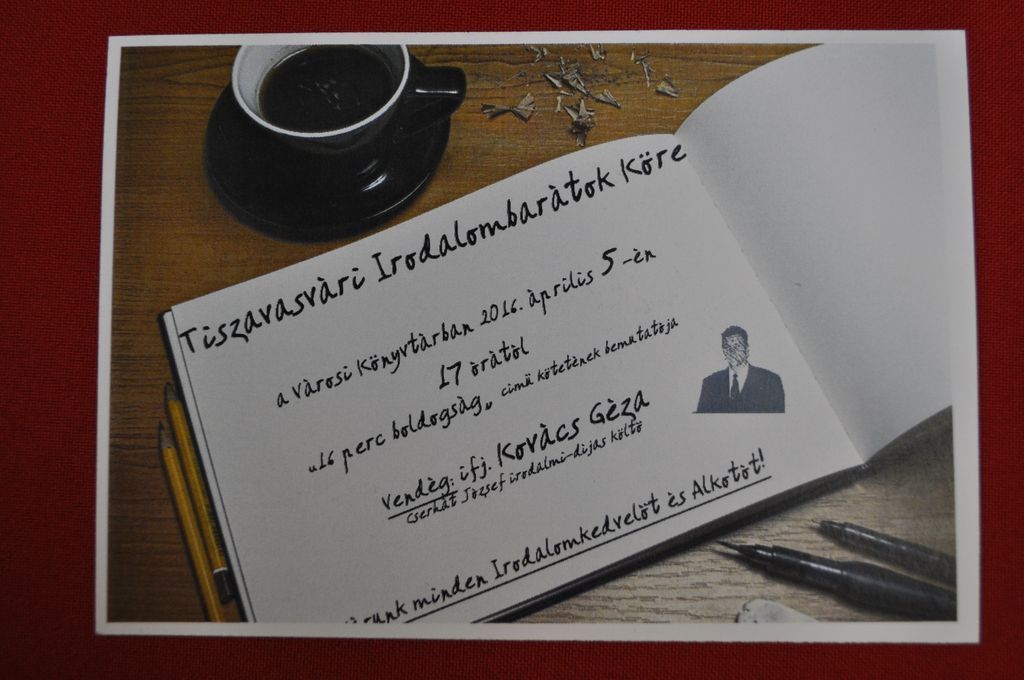 Tiszavasvàri Irodalombaràtok Köre
a Vàrosi Könyvtàrban 2016. àprilis 5-èn
17 òràtòl
„16 perc boldogsàg„ cimü kötetènek bemutatòja
Vendèg: ifj. Kovàcs Gèza
Cserhàt Jòzsef irodalmi-dijas költö
minden Irodalomkedvelöt ès Alkotòt!